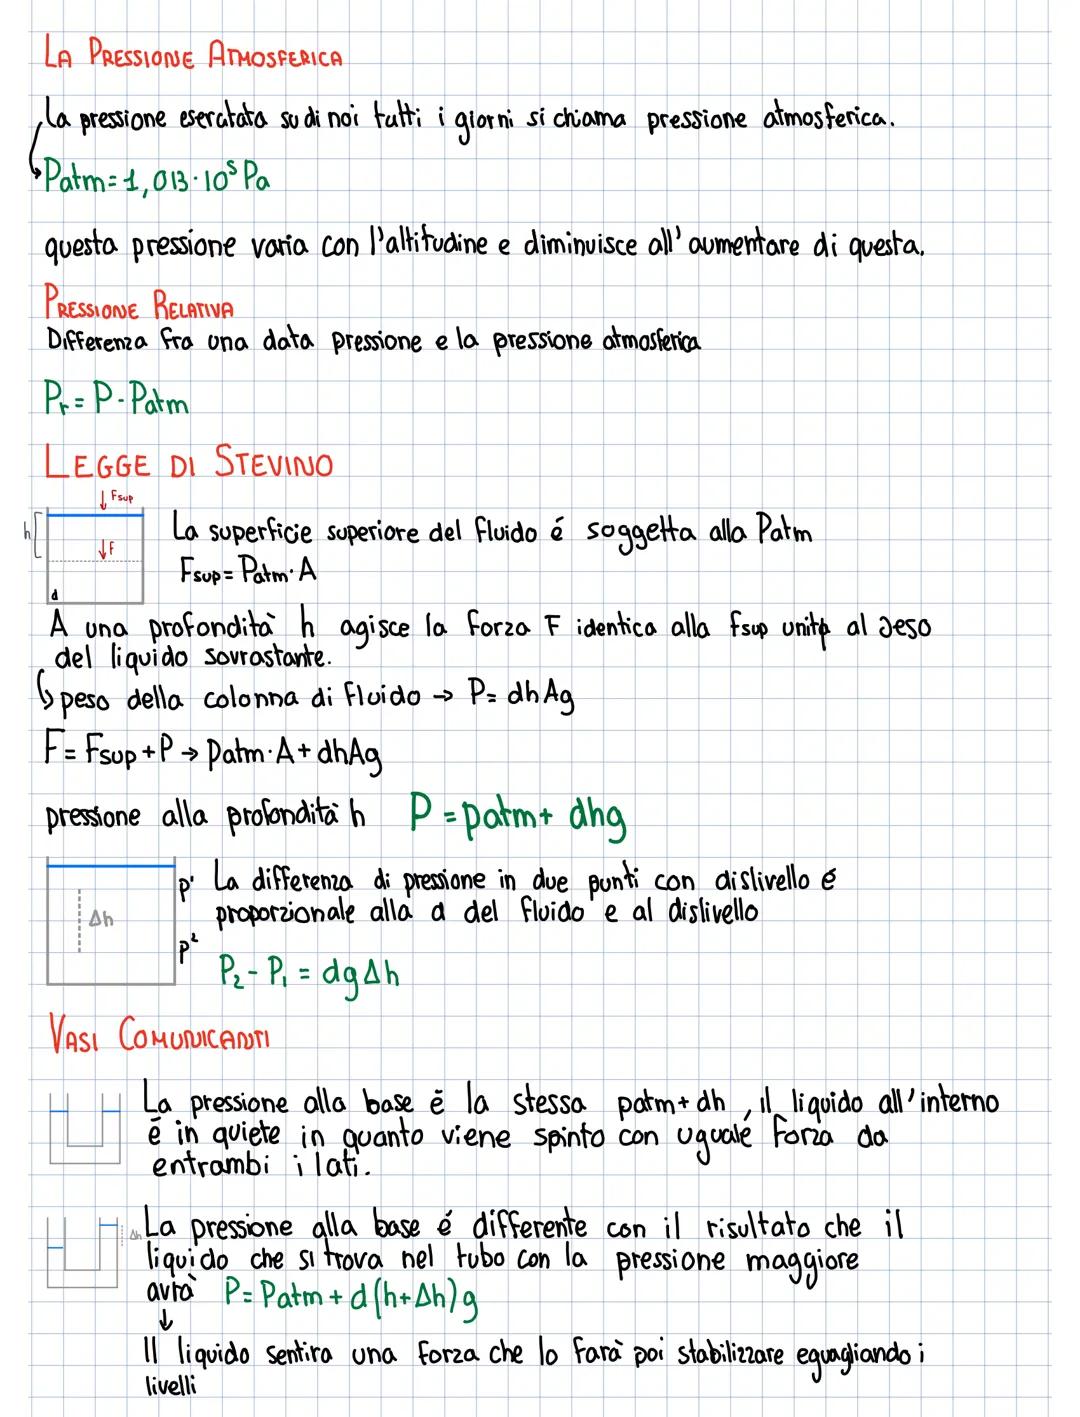 LA PRESSIONE ATMOSFERICA
La pressione eserctata su di noi tutti i giorni si chiama pressione atmosferica.
Patm=1,013·10⁵ Pa
questa pressione varia con l'altitudine e diminuisce all'aumentare di questa.
PRESSIONE RELATIVA
Differenza fra una data pressione e la pressione atmosferica
Pr = P - Patm
LEGGE DI STEVINO
↓ Fsup
h ↓F
La superficie superiore del fluido é soggetta alla Patm
Fsup = Patm·A
d
A una profondità h agisce la forza F identica alla fsup unita al peso
del liquido sovrastante.
↳ peso della colonna di fluido → P= dhAg
F= Fsup+P → patm·A+dhAg
pressione alla profondità h P = patm+ dhg
p¹ La differenza di pressione in due punti con dislivello é
Δh proporzionale alla d del fluido e al dislivello
p²
P₂-P₁ = dgΔh
VASI COMUNICANTI
La pressione alla base è la stessa patm+dh, il liquido all'interno
è in quiete in quanto viene spinto con uguale forza da
entrambi i lati.
Δh La pressione alla base é differente con il risultato che il
liquido che si trova nel tubo con la pressione maggiore
avrà P= Patm + d(h+Δh)g
↓
Il liquido sentira una forza che lo farà poi stabilizzare eguagliando i
livelli